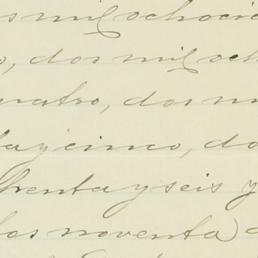 s mil ochocie
o, dos mil och
uatro, dos m
ta y cinco, do
chenta y seis y
tos noventa)